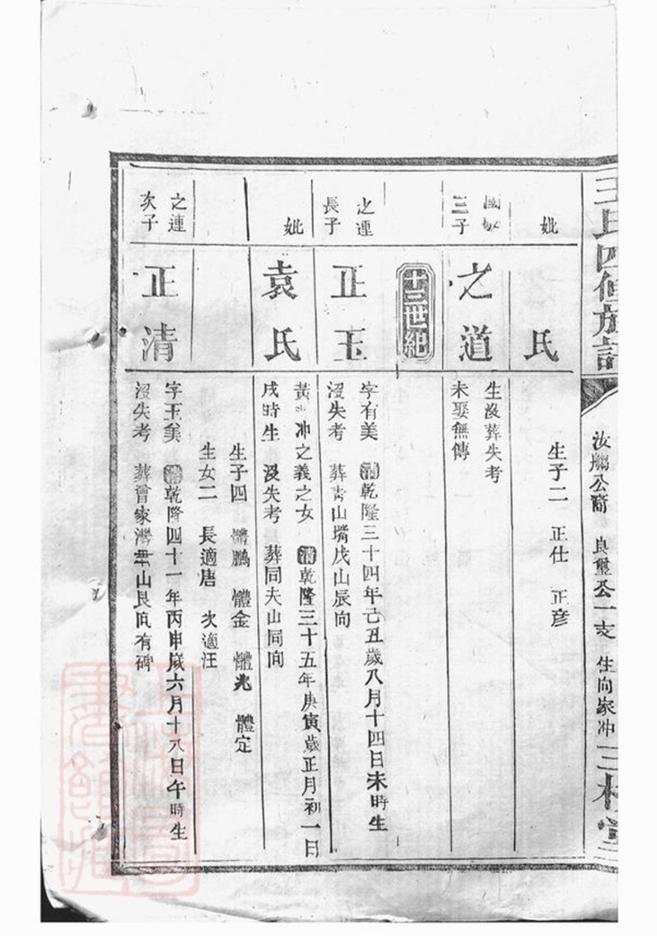 王氏四修族譜
汝鵬公裔 良璽公一支 生向家冲
三槐堂
妣
氏
生子二 正仕 正彦
三子
之道
生沒葬失考
未娶無傳
十三世紀
之連
長子
正玉
字有美 清乾隆三十四年己丑歲八月十四日未時生
沒失考 葬青山嘴戊山辰向
妣
袁氏
黃冲之義之女 清乾隆三十五年庚寅歲正月初一日
戌時生 沒失考 葬同夫山同向
生子四 體鵬 體金 體兆 體定
生女二 長適唐 次適汪
之連
次子
正清
字玉美 清乾隆四十一年丙申歲六月十八日午時生
沒失考 葬曾家灣山艮向有碑